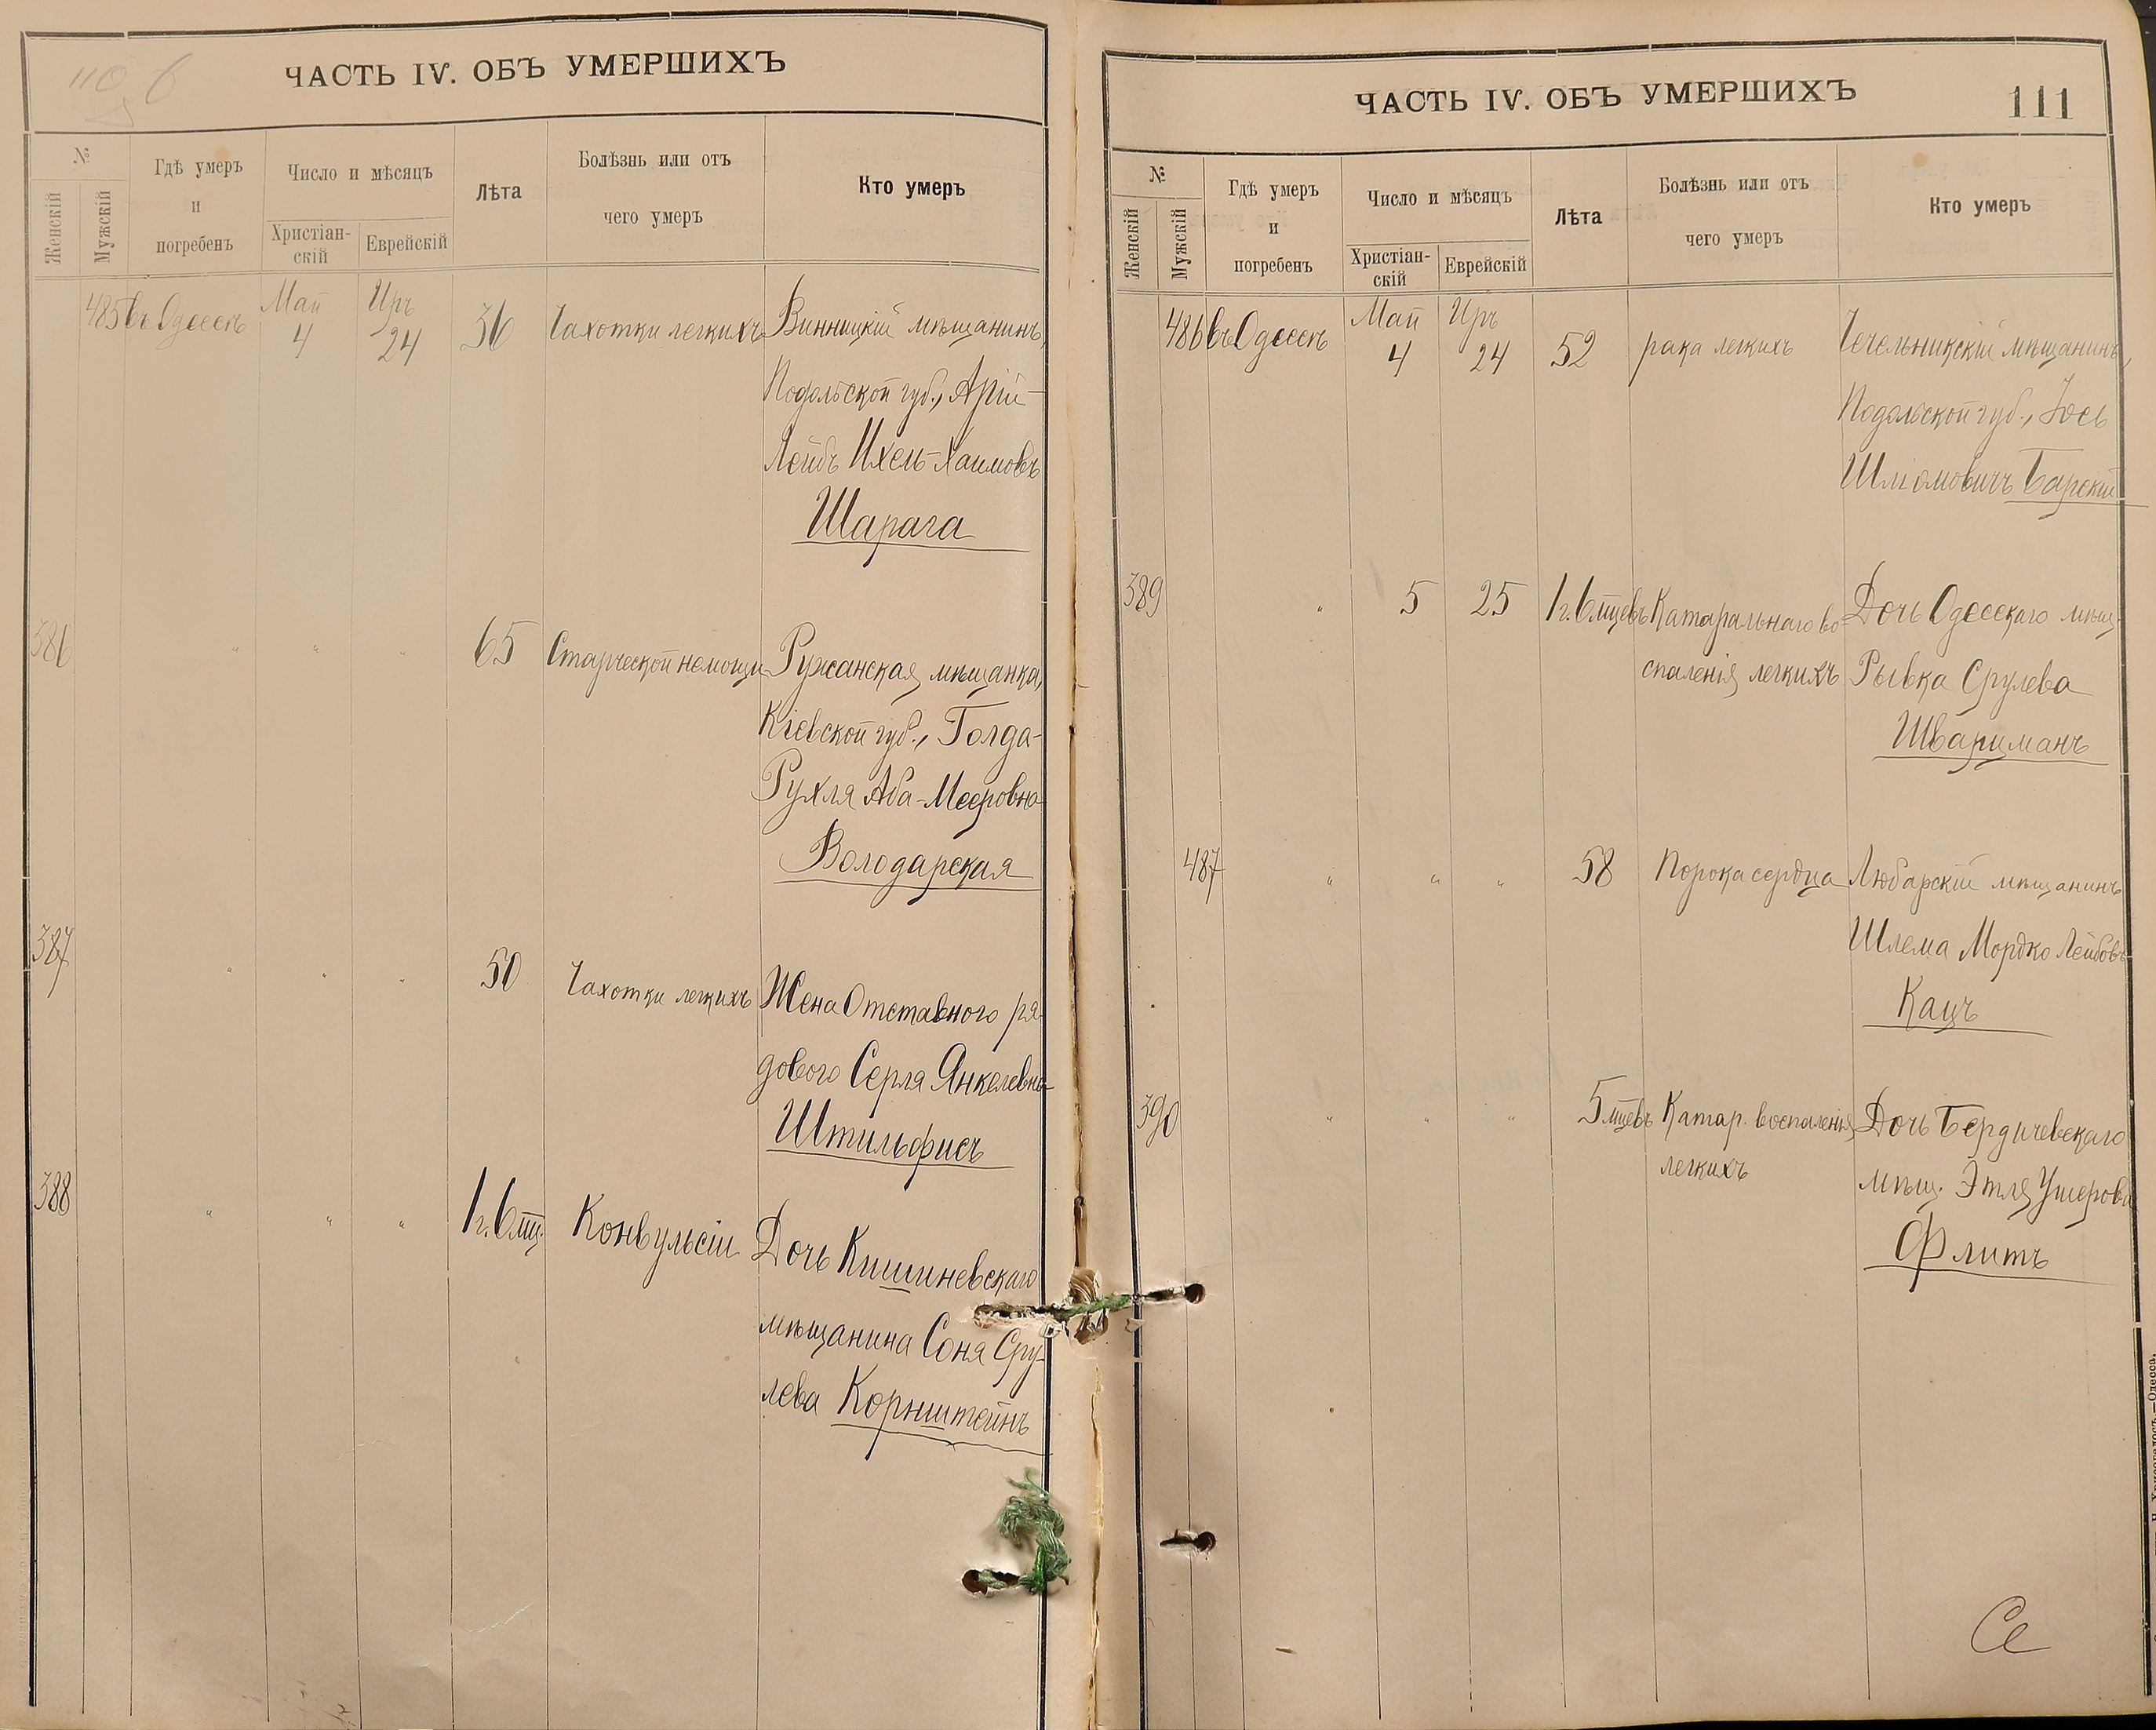 110 б
ЧАСТЬ IV. ОБЪ УМЕРШИХЪ
№
Женскій
Мужскій
Гдѣ умеръ
и
погребенъ
Число и мѣсяцъ
Христіан-
скій
Еврейскій
Лѣта
Болѣзнь или отъ
чего умеръ
Кто умеръ
485 въ Одессѣ Май 4 Иръ 24 36 Чахотки легкихъ Винницкій мѣщанинъ,
Подольской губ., Арій-
Лейбъ Ихель-Хаимовъ
Шарага
386 " " " 65 Старческой немощи Ружанская мѣщанка,
Кіевской губ., Голда-
Рухля Аба-Мееровна
Володарская
387 " " " 50 Чахотки легкихъ Жена Отставного ря-
дового Серля Янкелевна
Штильфисъ
388 " " " 1 г. 6 мц. Конвульсіи Дочь Кишиневскаго
мѣщанина Соня Сру-
лева Корнштейнъ
ЧАСТЬ IV. ОБЪ УМЕРШИХЪ
111
№
Женскій
Мужскій
Гдѣ умеръ
и
погребенъ
Число и мѣсяцъ
Христіан-
скій
Еврейскій
Лѣта
Болѣзнь или отъ
чего умеръ
Кто умеръ
486 въ Одессѣ Май 4 Иръ 24 52 рака легкихъ Чечельникскій мѣщанинъ,
Подольской губ., Іось
Шліомовичъ Барскій
389 " 5 25 1 г. 6 мцевъ Катаральнаго во- Дочь Одесскаго мѣщ.
спаленія легкихъ Рывка Срулева
Шварцманъ
487 " " " 58 Порока сердца Любарскій мѣщанинъ
Шлема Мордко Лейбовъ
Кацъ
390 " " " 5 мцевъ Катар. воспаленія Дочь Бердичевскаго
легкихъ мѣщ. Этля Ушерова
Флитъ